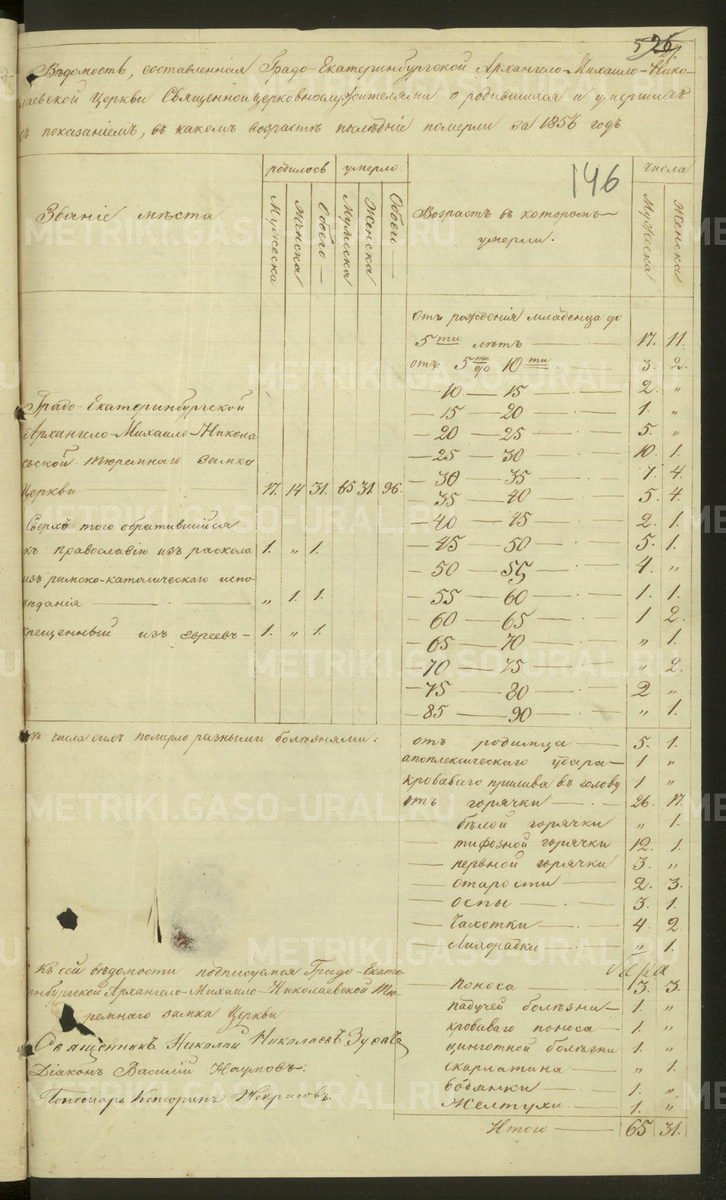 526
Вѣдомость, составленная Градо-Екатеринбургской Архангело-Михайло-Нико-
лаевской Церкви Священноцерковнослужителями о родившихся и умершихъ
съ показаніемъ, въ какомъ возрастѣ послѣдніе померли за 1856 годъ
146
Званіе мѣста
родилось
умерло
Возрастъ въ которомъ
умерли.
Числа
Мужеска
Женска
Обоего
Мужеска
Женска
Обоего
Мужеска
Женска
Градо-Екатеринбургской
Архангело-Михайло-Никола-
евской тюремнаго замка
Церкви 17. 14 31. 65 31. 96.
Сверхъ того обратившійся
къ православію изъ раскола 1. „ 1.
изъ римско-католическаго испо-
вѣданія „ 1. 1.
крещенный изъ евреевъ 1. „ 1.
Отъ рожденія младенца до
5ти лѣтъ 17. 11.
отъ 5ти до 10ти 3. 2.
10 — 15 2. „
15 — 20 1. „
20 — 25 5. „
25 — 30 10. 1.
30 — 35 7. 4.
35 — 40 5. 4.
40 — 45 2. 1.
45 — 50 5. 1.
50 — 55 4. „
55 — 60 1. 1.
60 — 65 1 2.
65 — 70 „ 1.
70 — 75 „ 2.
75 — 80 2 „
85 — 90 „ 1.
Изъ числа сихъ померло разными болѣзнями:
отъ родимца 5. 1.
апоплексическаго удара 1 „
кроваваго прилива въ голову 1 „
отъ горячки 26. 17.
бѣлой горячки „ 1.
тифозной горячки 12. 1.
нервной горячки 3. „
старости 2. 3.
оспы 5. 1.
чахотки 4. 2
лихорадки „ 1.
поноса 3. 3.
падучей болѣзни 1. „
кроваваго поноса 1. „
цинготной болѣзни 1. „
скарлатина „ 1.
водянки 1. „
желтухи 1. „
Итого 65 31.
Къ сей вѣдомости подписуемся Градо-Екате-
ринбургской Архангело-Михайло-Николаевской Тю-
ремнаго замка Церкви
Священникъ Николай Николаевъ
Діаконъ Василій Наумовъ.
Пономарь Некрасовъ.
METRIKI.GASO-URAL.RU